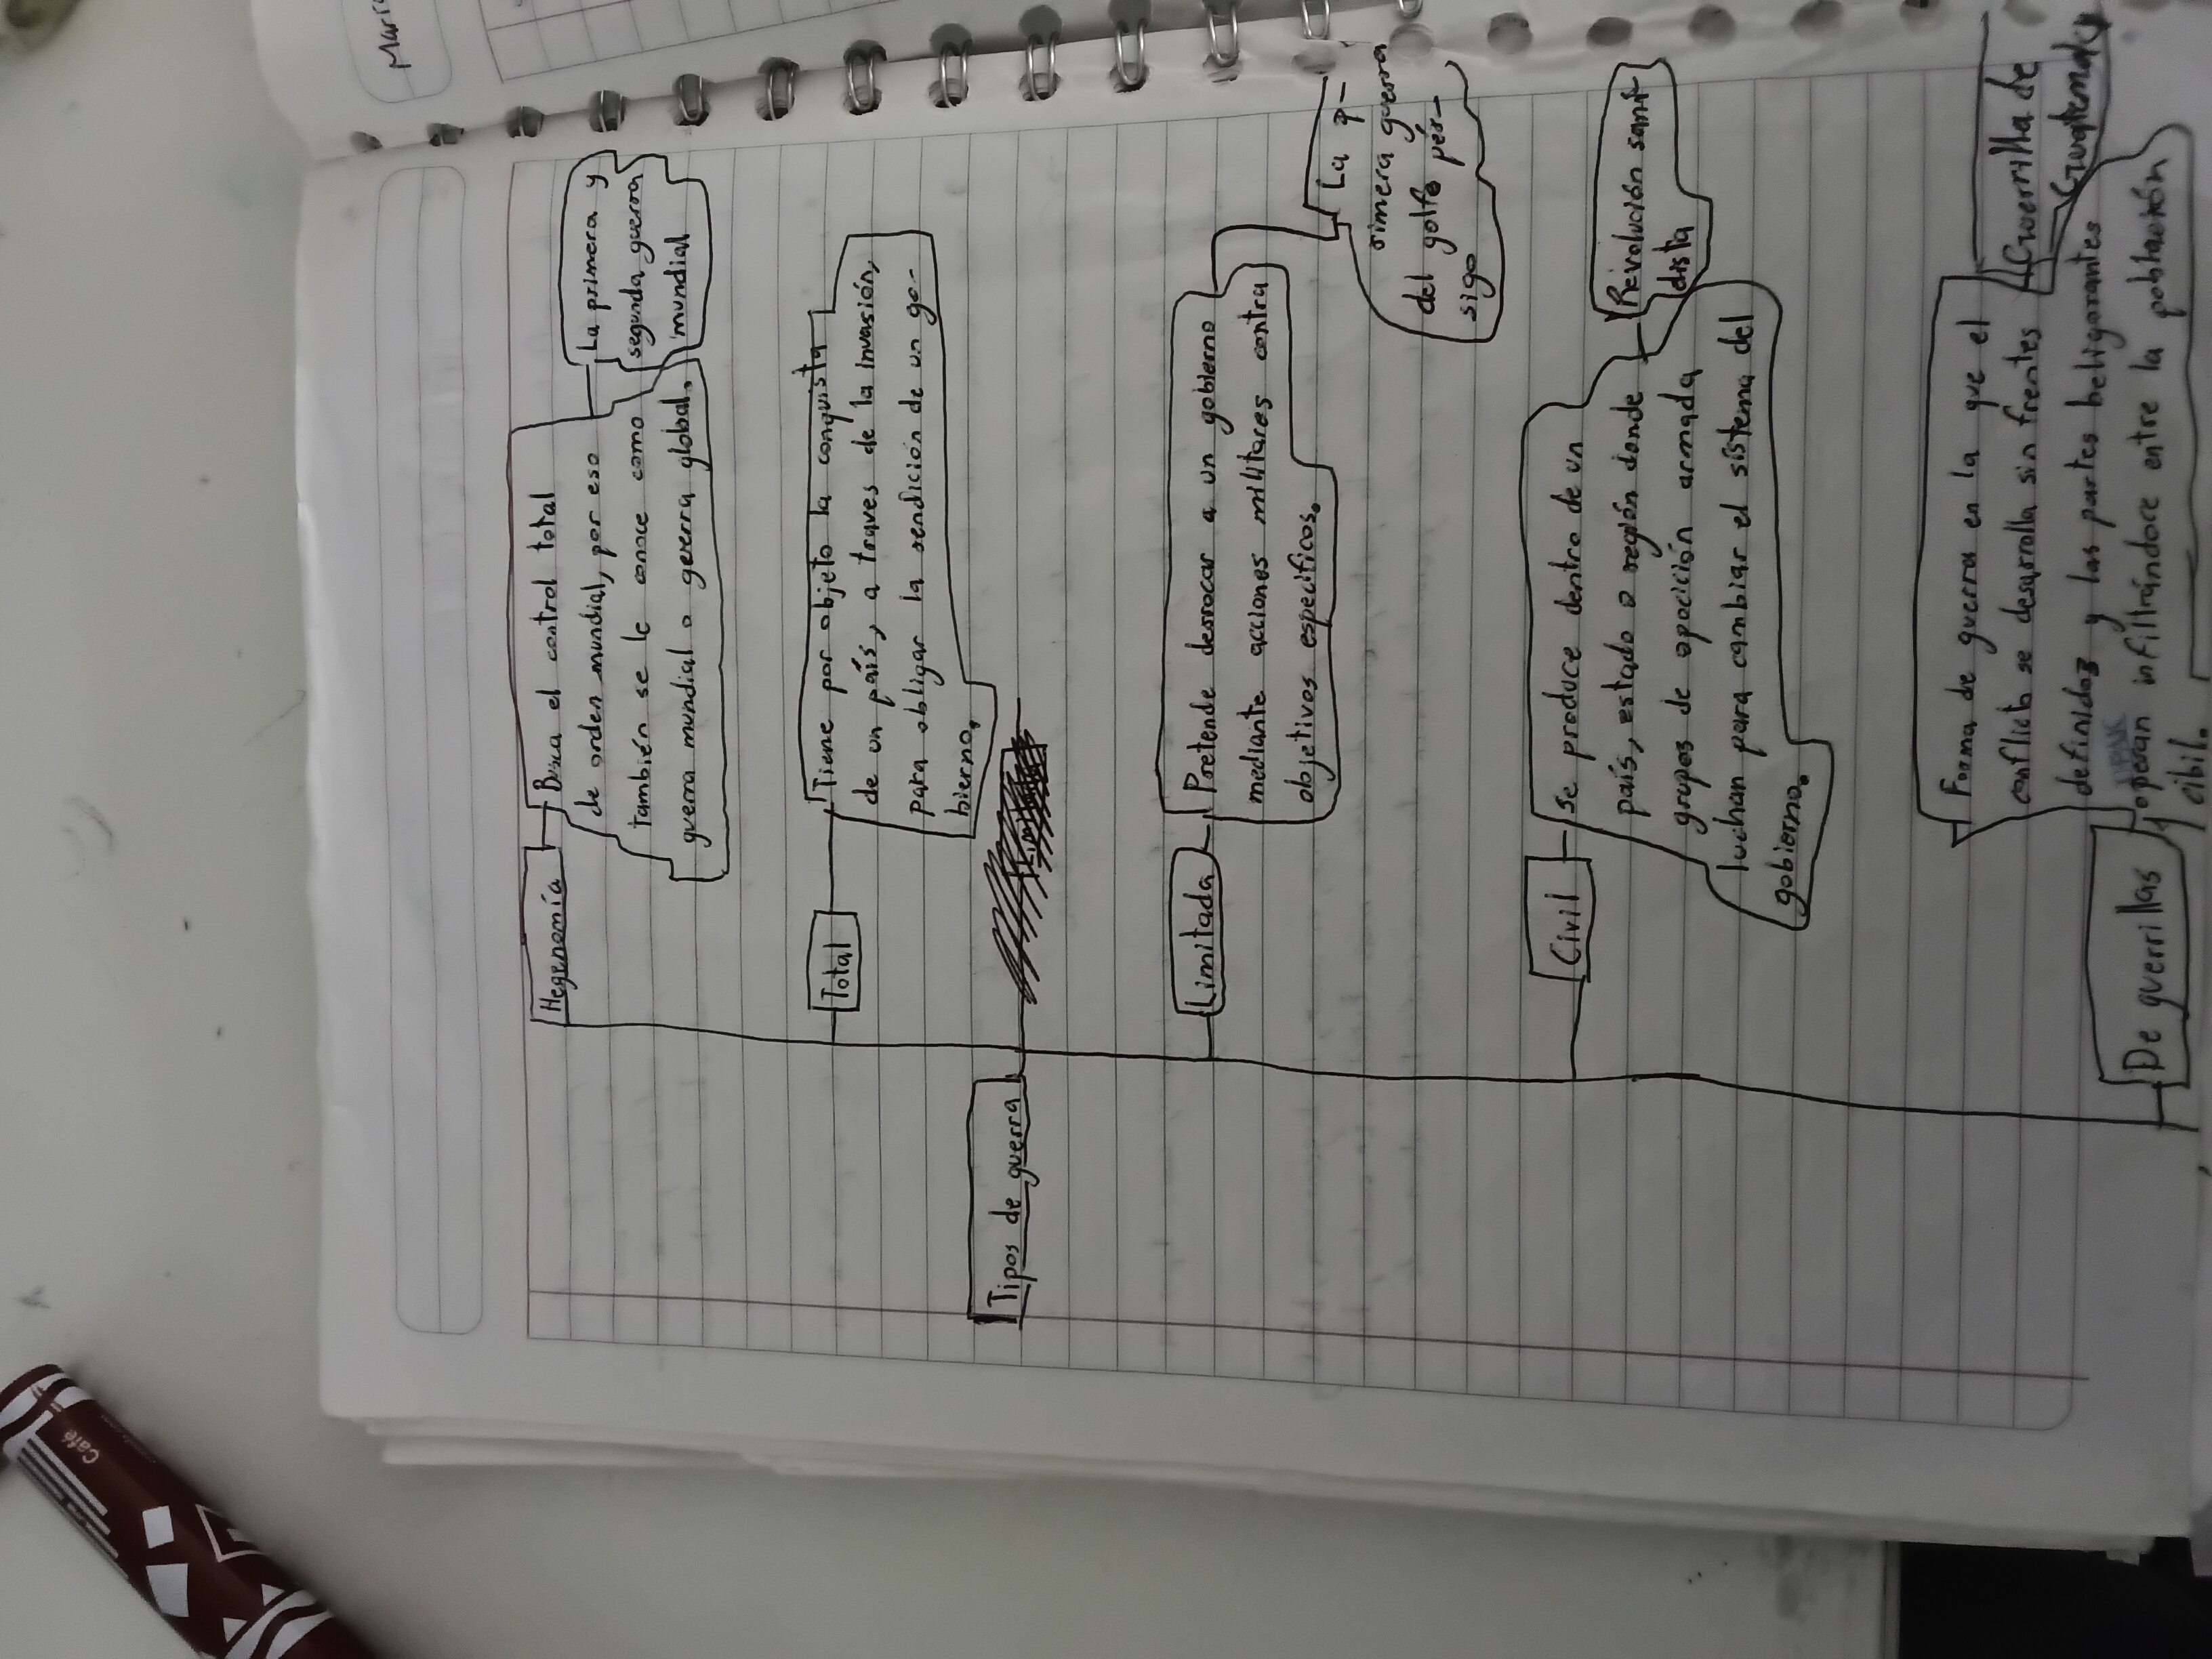 Tipos de guerra
Hegenomía
Busca el control total
de orden mundial, por eso
también se le conoce como
guerra mundial o gererra global.
La primera y
segunda guerra
mundial
Total
Tiene por objeto la conquista
de un país, a traves de la invasión,
para obligar la rendición de un go-
bierno.
Limitada
Pretende derrocar a un gobierno
mediante acciones militares contra
objetivos específicos.
La p-
rimera guerra
del golfo pér-
sigo
Civil
Se produce dentro de un
país, estado o región donde
grupos de opocición armada
luchan para cambiar el sistema del
gobierno.
Revolución sani-
dista
De guerrillas
Forma de guerra en la que el
conflicto se desarrolla sin frentes
definidos y las partes beligerantes
operan infiltrándoce entre la población
cibil.
Guerrilla de
Guatemala
Café